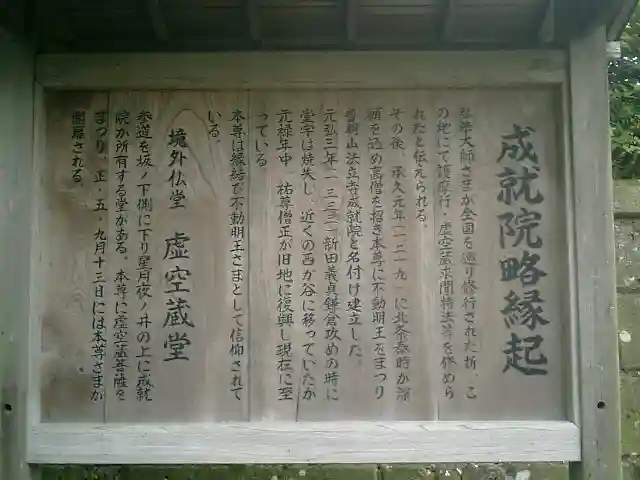 成就院略縁起
弘法大師さまが全国を巡り修行された折、こ
の地にて護摩行・虚空蔵求聞持法等を修めら
れたと伝えられる。
その後、承久元年(一二一九)に北条泰時が深
願を込め高僧を招き本尊に不動明王をまつり
普明山法立寺成就院と名付け建立した。
元弘三年(一三三三)新田義貞鎌倉攻めの時に
堂宇は焼失し、近くの西が谷に移っていたが
元禄年中、祐尊僧正が旧地に復興し現在に至
っている
本尊は縁結び不動明王さまとして信仰されて
いる。
境外仏堂 虚空蔵堂
参道を坂ノ下側に下り星月夜ノ井の上に成就
院が所有する堂がある。本尊に虚空蔵菩薩を
まつり、正・五・九月十三日には本尊さまが
開扉される。